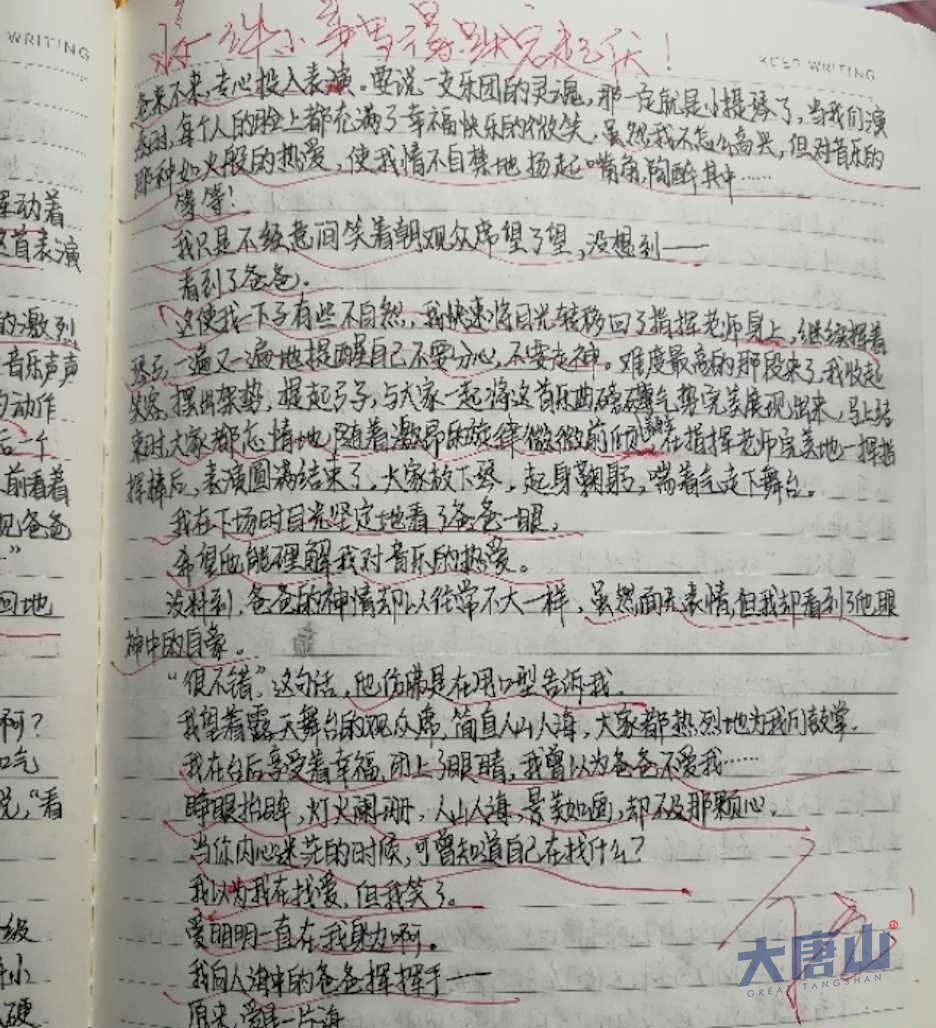 WRITING
KEEP WRITING
将一件小事写得跌宕起伏！
爸来不来，专心投入表演。要说一支乐团的灵魂，那一定就是小提琴了，当我们演
奏时，每个人的脸上都充满了幸福快乐的微笑，虽然我不怎么高兴，但对音乐的
那种如火般的热爱，使我情不自禁地扬起嘴角，陶醉其中……
等等！
我只是不经意间笑着朝观众席望了望，没想到——
看到了爸爸。
这使我一下子有些不自然，我快速将目光转移回了指挥老师身上，继续挥着
琴弓，一遍又一遍地提醒自己不要分心，不要走神。难度最高的那段来了，我收起
笑容，摆出架势，提起弓子，与大家一起将这首乐曲磅礴气势完美展现出来，马上结
束时，大家都忘情地随着激昂乐旋律微微前倾，在指挥老师完美地一挥指
挥棒后，表演圆满结束了，大家放下琴，起身鞠躬，喘着气走下舞台。
我在下场时目光坚定地看了爸爸一眼，
希望他能理解我对音乐的热爱。
没料到，爸爸的神情却以往常不大一样，虽然面无表情，但我却看到了他眼
神中的自豪。
“很不错。”这句话，他仿佛是在用口型告诉我。
我望着露天舞台的观众席，简直人山人海，大家都热烈地为我们鼓掌。
我在台后享受着幸福，闭上了眼睛，我曾以为爸爸不爱我……
睁眼抬眸，灯火阑珊，人山人海，景美如画，却不及那颗心。
当你内心迷茫的时候，可曾知道自己在找什么？
我以为我在找爱，但我笑了。
爱明明一直在我身边啊。
我向人海中的爸爸挥挥手——
原来，爱是一片海
挥动着
这首表演
的激烈
音乐声声
动作
后一个
前看着
见爸爸
”
回地
啊？
口气
说，“看
级
小
硬
大唐山
GREAT TANGSHAN